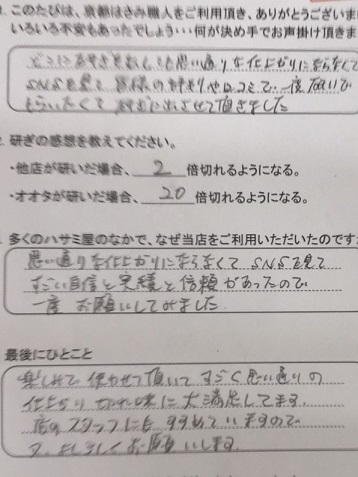 このたびは、京都はさみ職人をご利用頂き、ありがとうございま
いろいろ不安もあったでしょう…何が決め手でお声掛け頂きま
思い通りな仕上がりにならなくて
SNSを見て 皆様の 口コミで 一度
させて頂きました
研ぎの感想を教えてください。
・他店が研いだ場合、2 倍切れるようになる。
・オオタが研いだ場合、20 倍切れるようになる。
多くのハサミ屋のなかで、なぜ当店をご利用いただいたのです
思い通りな仕上がりにならなくて SNSを見て
すごい自信と実績と信頼があったので
一度 お願いしてみました
最後にひとこと
使わせて頂いて すごく思い通りの
仕上がり 切れ味に大満足してます。
スタッフにも すすめていますので
よろしくお願いします。